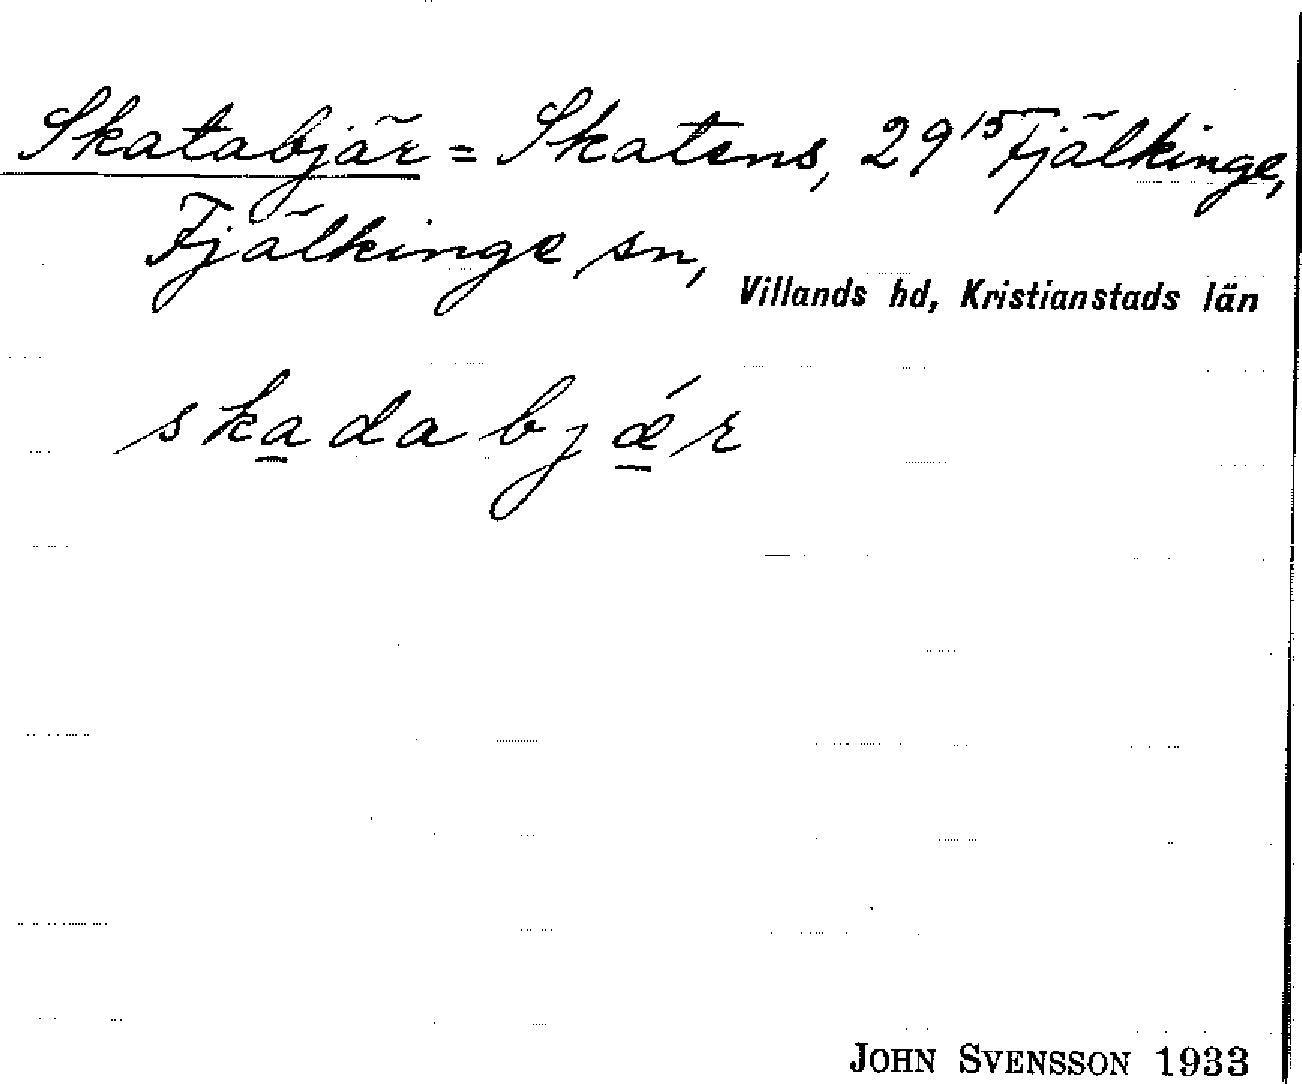 Skatabjär = Skatens, 29¹⁵ Fjälkinge,
Fjälkinge sn,
Villands hd, Kristianstads län
skadabjǽr
JOHN SVENSSON 1933